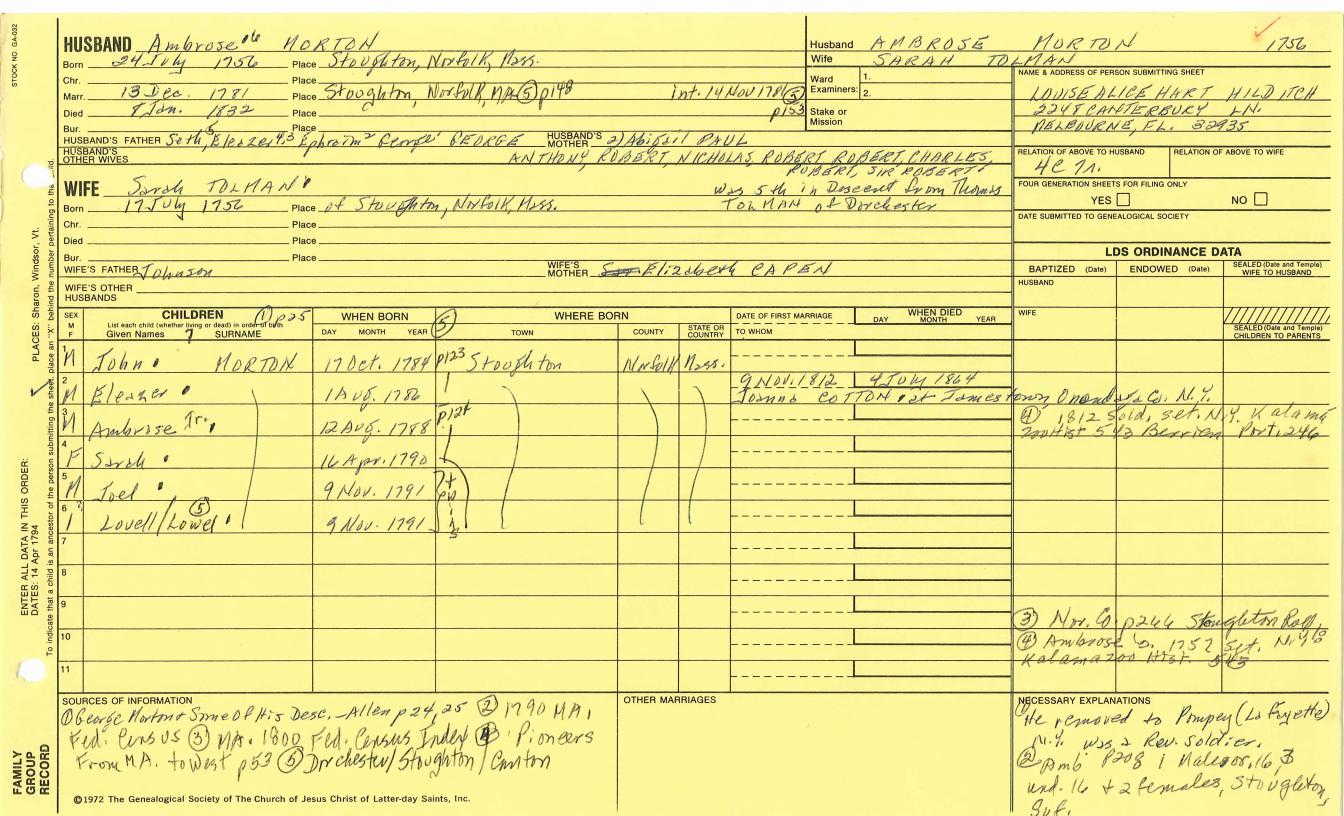 STOCK NO. GA-032
HUSBAND Ambrose 6 MORTON
Born 24 July 1756 Place Stoughton, Norfolk, Mass.
Chr. Place
Marr. 13 Dec. 1781 Place Stoughton, Norfolk, MA (5) p148 int. 14 Nov 1781 (5) p153
Died 8 Jan. 1832 Place
Bur. Place
HUSBAND'S FATHER Seth,5 Eleazer4,3 Ephraim2 George1 GEORGE HUSBAND'S MOTHER 2) Abigail PAUL
HUSBAND'S OTHER WIVES ANTHONY, ROBERT, NICHOLAS, ROBERT, ROBERT, CHARLES,
ROBERT, SIR ROBERT
WIFE Sarah TOLMAN was 5th in Descent from Thomas
Born 17 July 1756 Place of Stoughton, Norfolk, Mass. TOLMAN of Dorchester
Chr. Place
Died Place
Bur. Place
WIFE'S FATHER Johnson WIFE'S MOTHER Elizabeth CAPEN
WIFE'S OTHER HUSBANDS
Husband AMBROSE MORTON 1756
Wife SARAH TOLMAN
Ward Examiners: 1.
2.
Stake or Mission
NAME & ADDRESS OF PERSON SUBMITTING SHEET
LOUISE ALICE HART HILDITCH
2248 CANTERBURY LN.
MELBOURNE, FL. 32935
RELATION OF ABOVE TO HUSBAND RELATION OF ABOVE TO WIFE
FOUR GENERATION SHEETS FOR FILING ONLY
YES NO
DATE SUBMITTED TO GENEALOGICAL SOCIETY
LDS ORDINANCE DATA
BAPTIZED (Date) ENDOWED (Date) SEALED (Date and Temple) WIFE TO HUSBAND
HUSBAND
WIFE
SEALED (Date and Temple) CHILDREN TO PARENTS
SEX M F CHILDREN (1) p25 WHEN BORN (5) WHERE BORN DATE OF FIRST MARRIAGE WHEN DIED
List each child (whether living or dead) in order of birth
Given Names 7 SURNAME DAY MONTH YEAR TOWN COUNTY STATE OR COUNTRY TO WHOM DAY MONTH YEAR
1 M John MORTON 17 Oct. 1784 p123 Stoughton Norfolk Mass.
2 M Eleazer 1 Aug. 1786 9 Nov. 1812 4 July 1864
Joanna COTTON at Jamestown, Onondaga Co. N.Y.
3 M Ambrose Jr. 12 Aug. 1788 p124
(4) 1812 Sold. set. N.Y. Kalama
zoo Hist 543 Berrien Port. 246
4 F Sarah 16 Apr. 1790
5 M Joel 9 Nov. 1791
6 Lovell/Lowel (5) 9 Nov. 1791
7
8
9
10
11
(3) Nor. Co p266 Stoughton
(4) Ambrose b. 1757 set. N.Y.
Kalamazoo Hist. 543
SOURCES OF INFORMATION
(1) George Morton & Some of His Desc. - Allen p24, 25 (2) 1790 MA,
Fed. Census (3) MA. 1800 Fed. Census Index (4) Pioneers
From MA. to West p53 (5) Dorchester/Stoughton/Canton
©1972 The Genealogical Society of The Church of Jesus Christ of Latter-day Saints, Inc.
OTHER MARRIAGES
NECESSARY EXPLANATIONS
(1) He removed to Pompey (La Fayette)
N.Y. was a Rev. Soldier.
(2) Amb p208 1 Male 16, 3
und. 16 & 2 females, Stoughton,
Suf.
PLACES: Sharon, Windsor, Vt.
ENTER ALL DATA IN THIS ORDER:
DATES: 14 Apr 1794
To indicate that a child is an ancestor of the person submitting the sheet, place an "X" behind the number pertaining to the child.
FAMILY GROUP RECORD